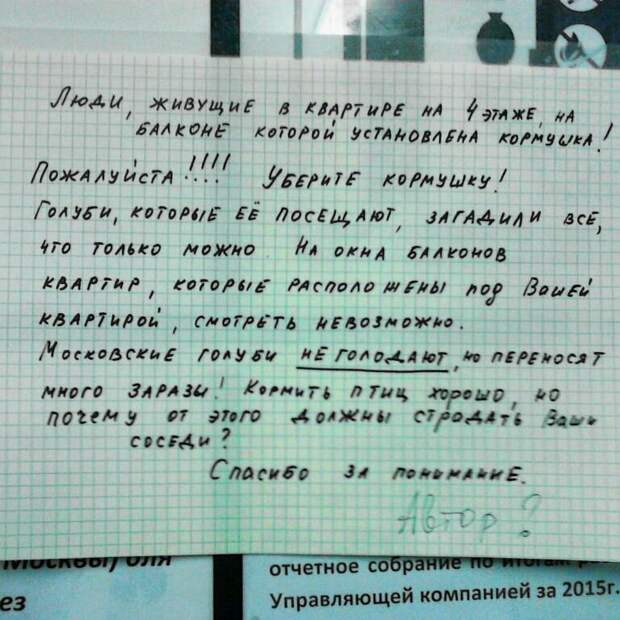 Люди, живущие в квартире на 4 этаже, на
балконе которой установлена кормушка!
Пожалуйста!!!! Уберите кормушку!
Голуби, которые её посещают, загадили все,
что только можно. На окна балконов
квартир, которые расположены под Вашей
квартирой, смотреть невозможно.
Московские голуби не голодают, но переносят
много заразы! Кормить птиц хорошо, но
почему от этого должны страдать Ваши
соседи?
Спасибо за понимание.
Автор?
Москвы, для
отчетное собрание по итогам
ез
Управляющей компанией за 2015г.